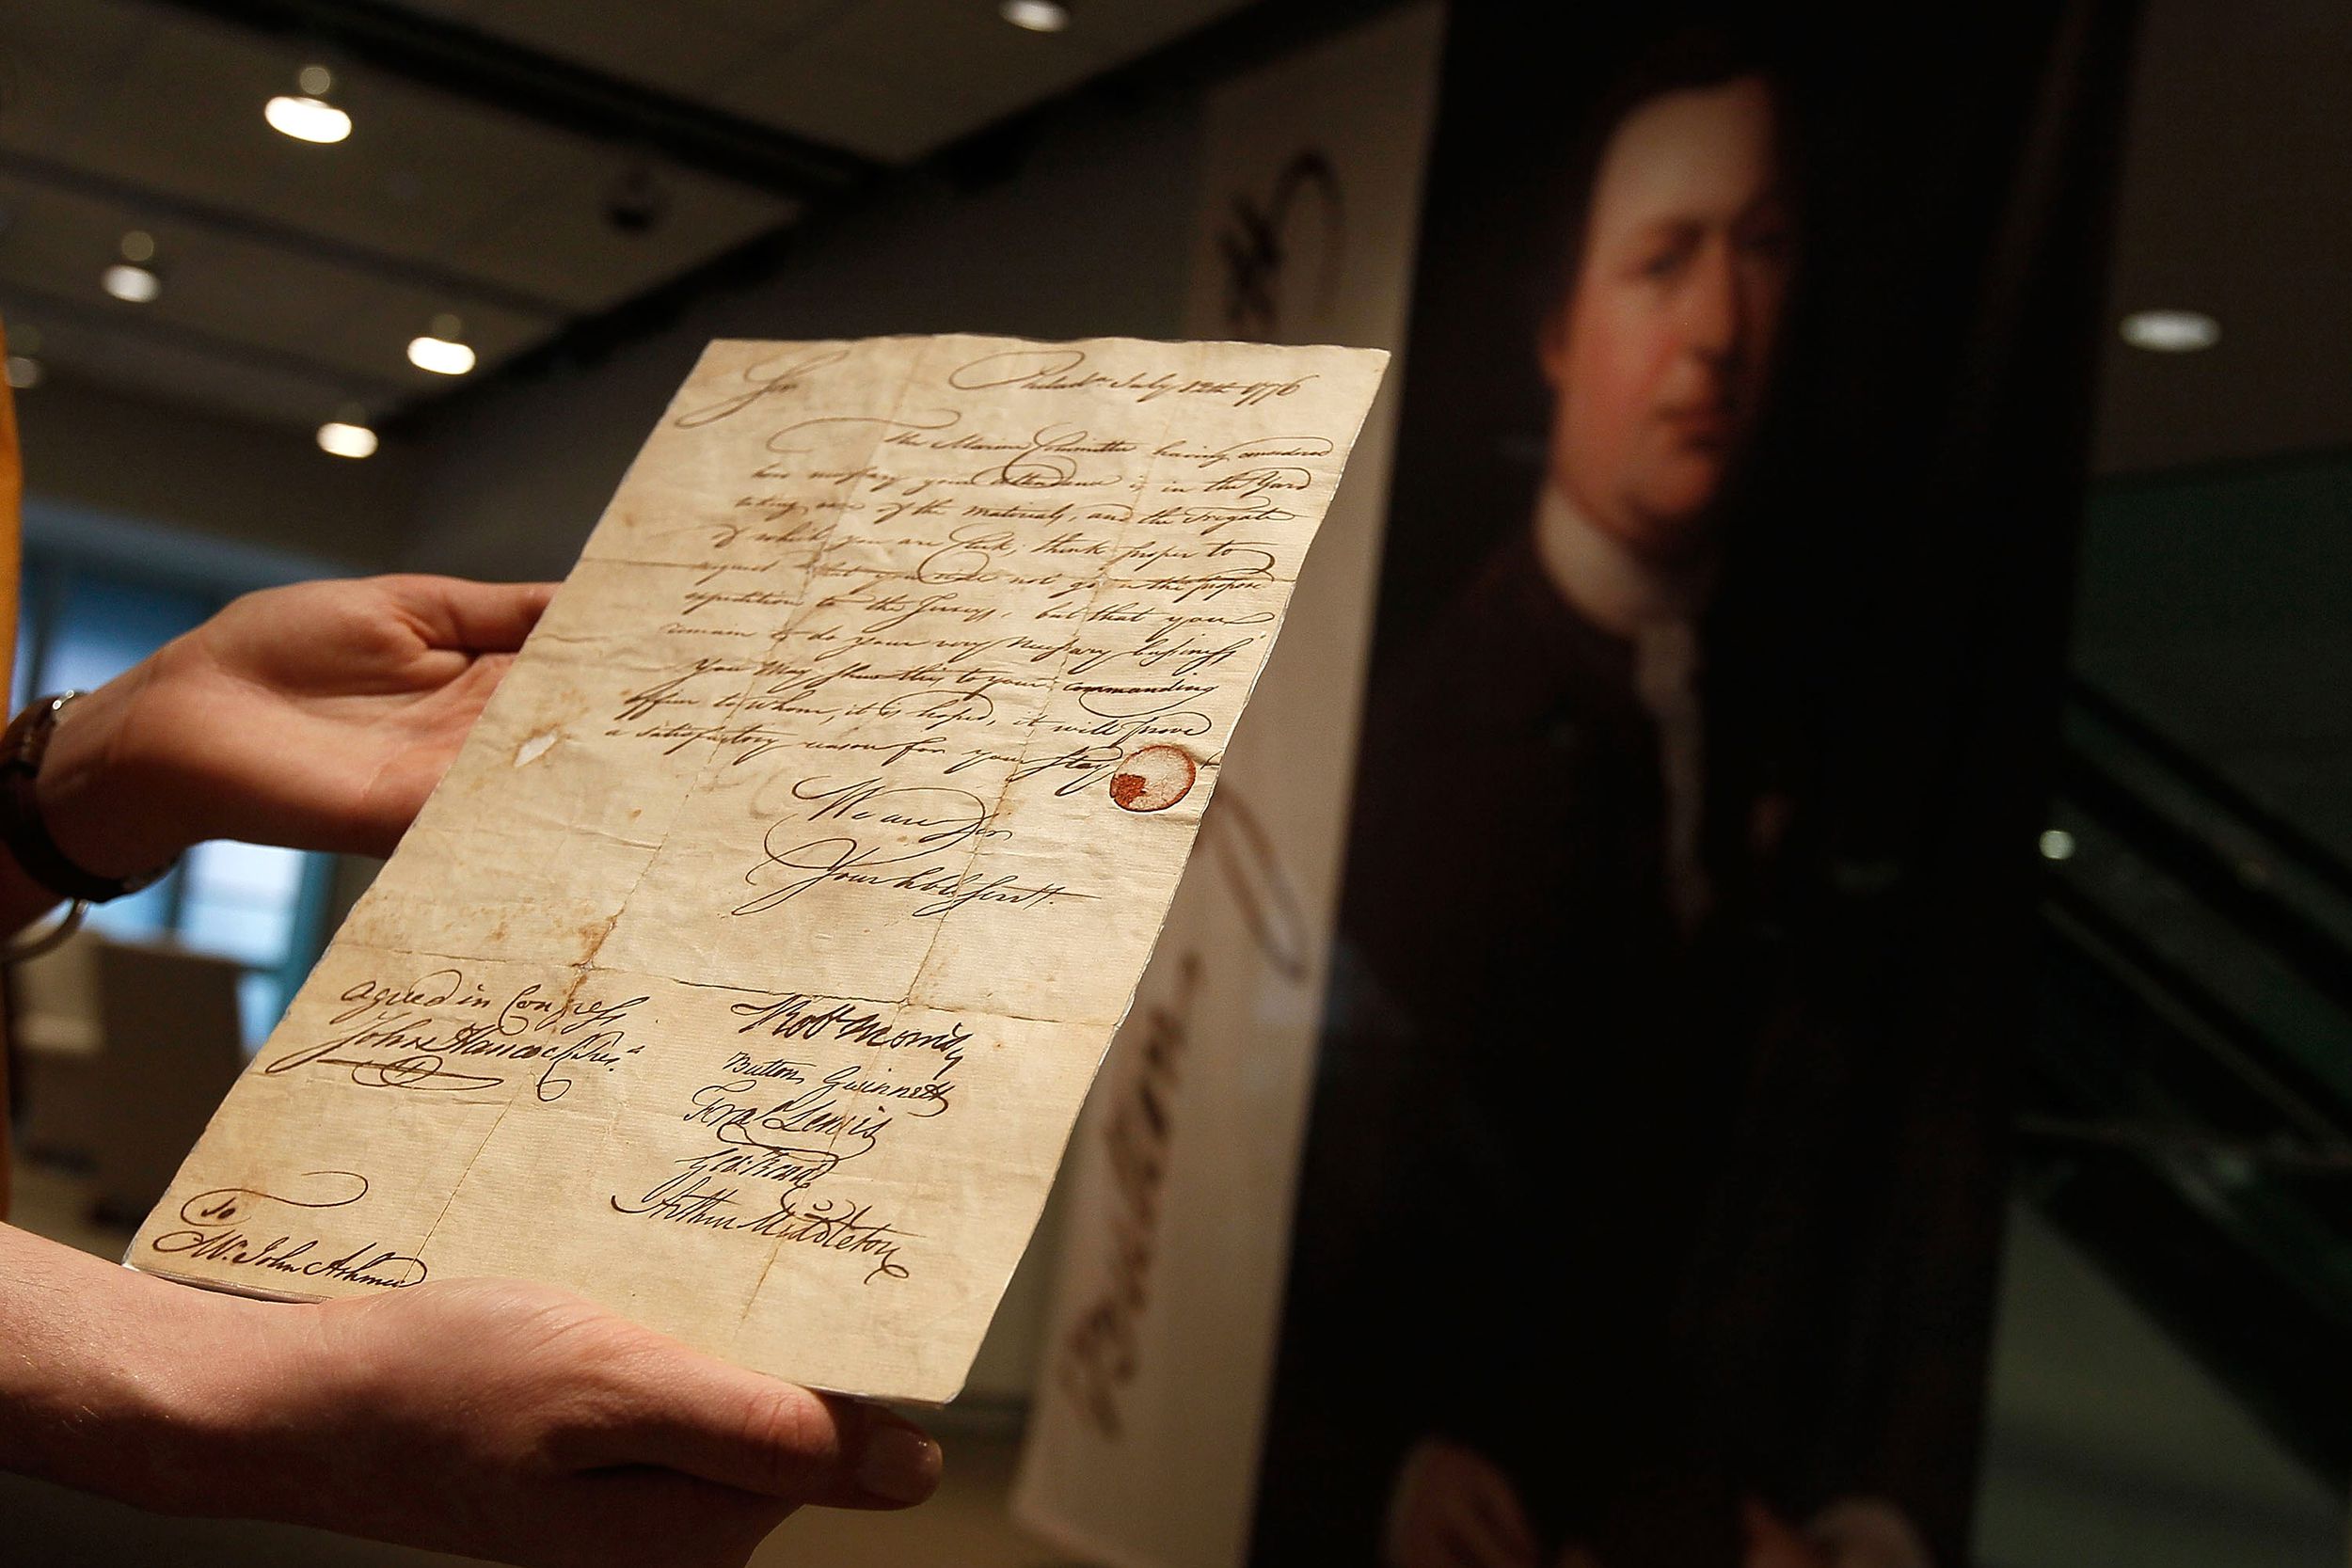 Sir
Philada. July 12th 1776
The Marine Committee having considered
how necessary your attendance is in the Yard
taking care of the materials, and the Frigate
of which you are Clerk, think proper to
request that you will not go on the propos'd
expedition to the Jerseys, but that you
remain to do your very necessary business
You May shew this to your commanding
officer to Whom, it is hoped, it will prove
a satisfactory reason for your stay
We are Sir
Your hble Servts.
agreed in Congress
John Hancock Presd.
Robt Morris
Button Gwinnett
Fras. Lewis
Geo: Read
Arthur Middleton
To
Mr. John Ashmead
Button